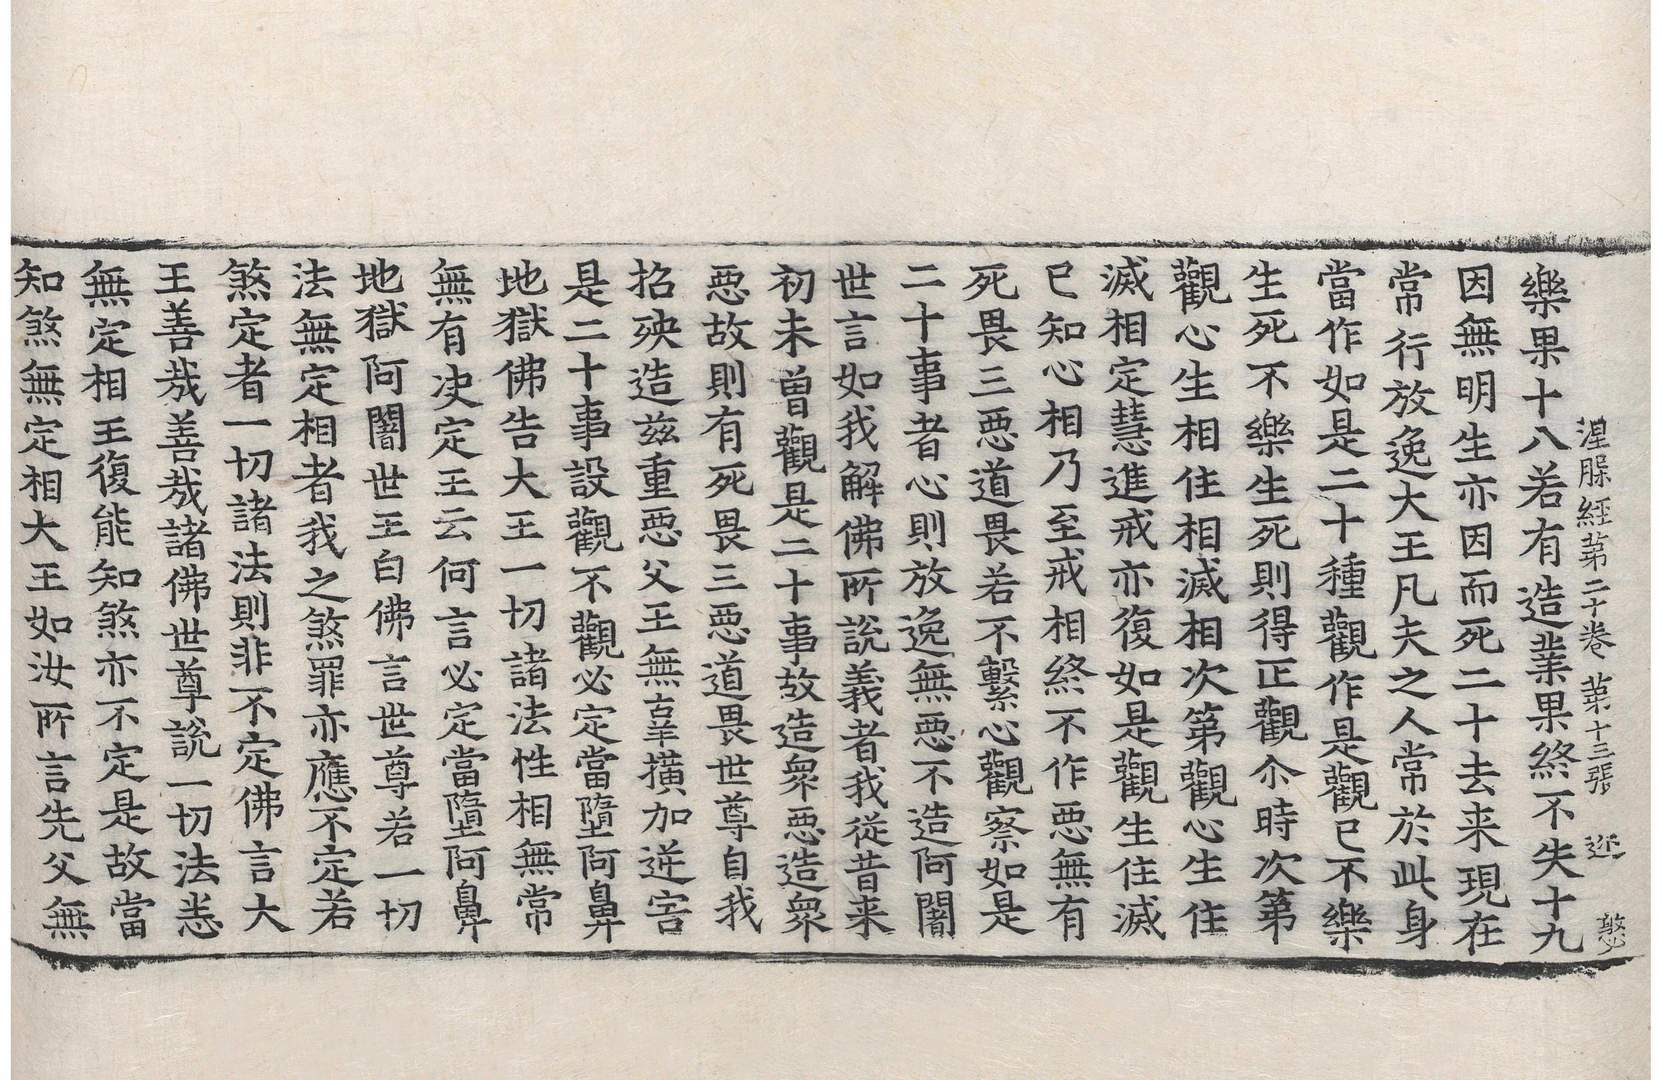 涅槃經第二十卷 第十三張 迩
樂果十八若有造業果終不失十九
因無明生亦因而死二十去来現在
常行放逸大王凡夫之人常於此身
當作如是二十種觀作是觀已不樂
生死不樂生死則得正觀尒時次第
觀心生相住相滅相次第觀心生住
滅相定慧進戒亦復如是觀生住滅
已知心相乃至戒相終不作惡無有
死畏三惡道畏若不繫心觀察如是
二十事者心則放逸無惡不造阿闍
世言如我解佛所說義者我從昔来
初未曾觀是二十事故造衆惡造衆
惡故則有死畏三惡道畏世尊自我
招殃造茲重惡父王無辜横加逆害
是二十事設觀不觀必定當墮阿鼻
地獄佛告大王一切諸法性相無常
無有決定王云何言必定當墮阿鼻
地獄阿闍世王白佛言世尊若一切
法無定相者我之煞罪亦應不定若
煞定者一切諸法則非不定佛言大
王善哉善哉諸佛世尊說一切法悉
無定相王復能知煞亦不定是故當
知煞無定相大王如汝所言先父無